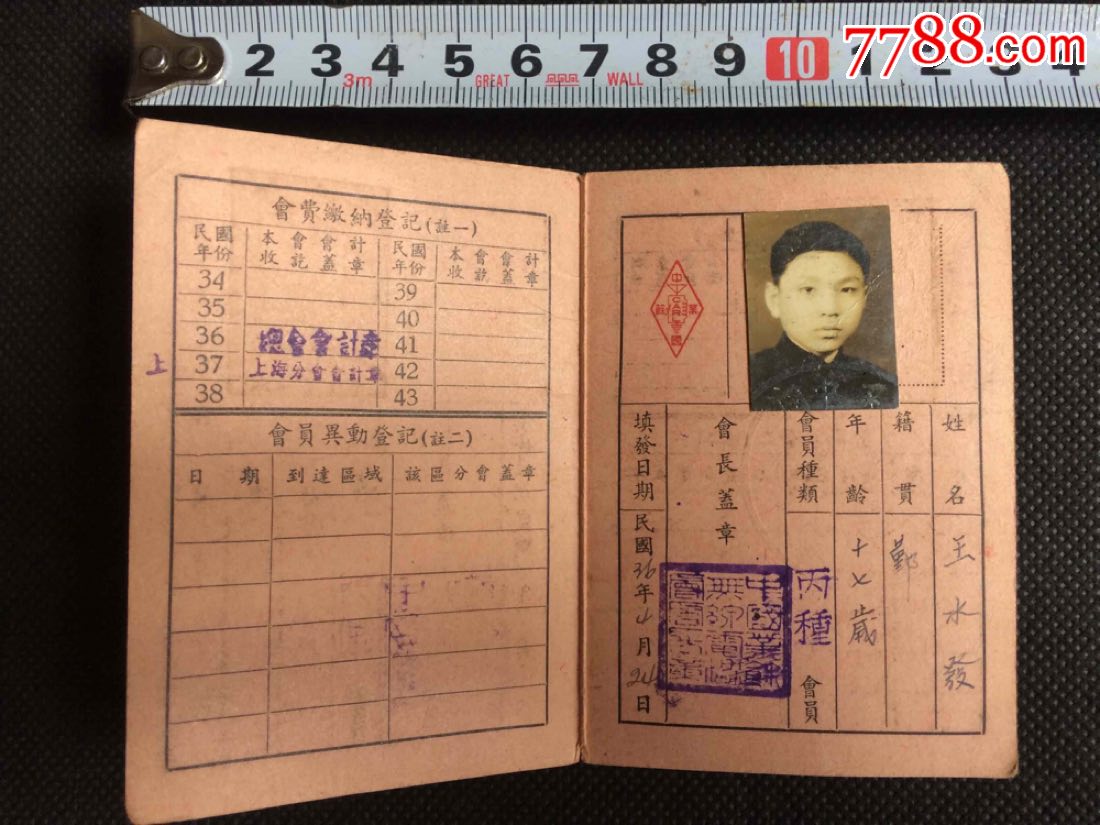 2 3 4 5 6 7 8 9 10 1 2 3 4
3m GREAT WALL
7788.com
會費繳納登記(註一)
民國年份 本會會計收訖蓋章 民國年份 本會會計收訖蓋章
34 39
35 40
36 總會會計章 41
上 37 上海分會會計章 42
38 43
會員異動登記(註二)
日期 到達區域 該區分會蓋章
姓名 王水發
籍貫 鄞
年齡 十七歲
會員種類 丙種 會員
會長蓋章
填發日期 民國36年4月24日